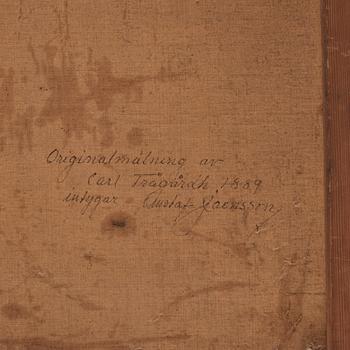 Originalmålning av
Carl Trägårdh 1889
intygar Gustaf Jaensson